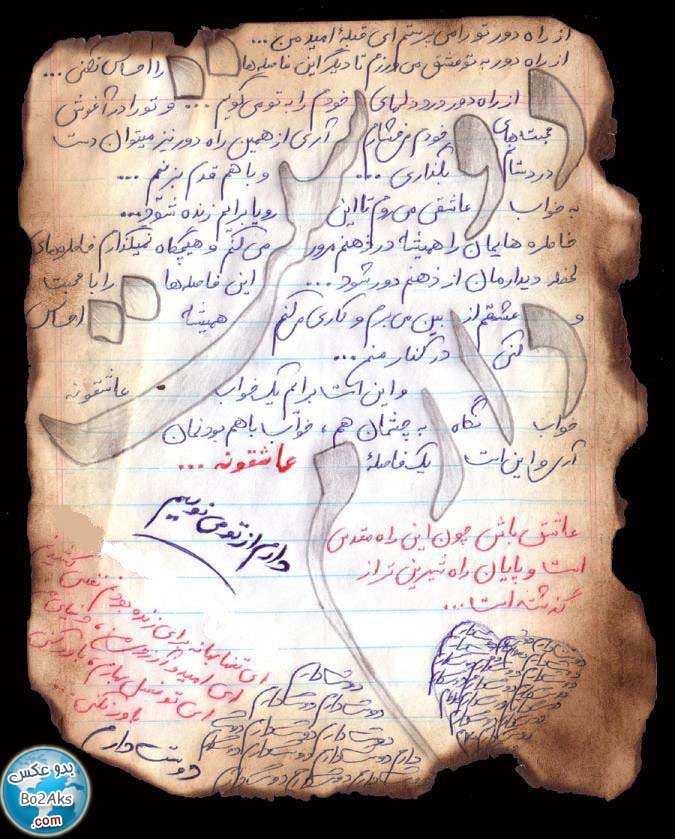 از راه دور تو را می پرستم ای قبلهٔ امید من ...
از راه دور به تو عشق می ورزم تا دیگر این فاصله ها را احساس نکنی ...
از راه دور درد دلهای خودم را به تو می گویم ... و تو را در آغوش
محبت های خودم می فشارم آری از همین راه دور نیز میتوان دست
در دستانم بگذاری ... و با هم قدم بزنیم ...
به خواب عاشقی می روم تا این رویا برایم زنده شود ...
خاطره هایمان را همیشه در ذهنم مرور می کنم و هیچگاه نمیگذارم خاطره های
لحظه دیدارمان از ذهنم دور شود ... این فاصله ها را با محبت
و عشقم از بین می برم و کاری می کنم همیشه احساس
کنی در کنار منم ...
و این است برایم یک خواب عاشقونه
خواب نگاه به چشمان هم ، خواب با هم بودنمان
آری و این است یک فاصلهٔ عاشقونه ...
دارم از تو می نویسم
عاشق باش چون این راه مقدس
است و پایان راه شیرین تر از
گذشته است ...
ای تنها بهانه برای زنده بودنم نفس کشیدنم
ای امید و آرزوی من ،
ای تو فصل بهارم ، باور کنی
باور نکنی ...
دوستت دارم
دوستت دارم
دوستت دارم دوستت دارم
دوستت دارم دوستت دارم
بدو عکس
Bo2Aks
.com